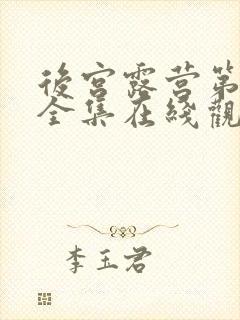 後宮露营第
全集在綫觀
李玉君